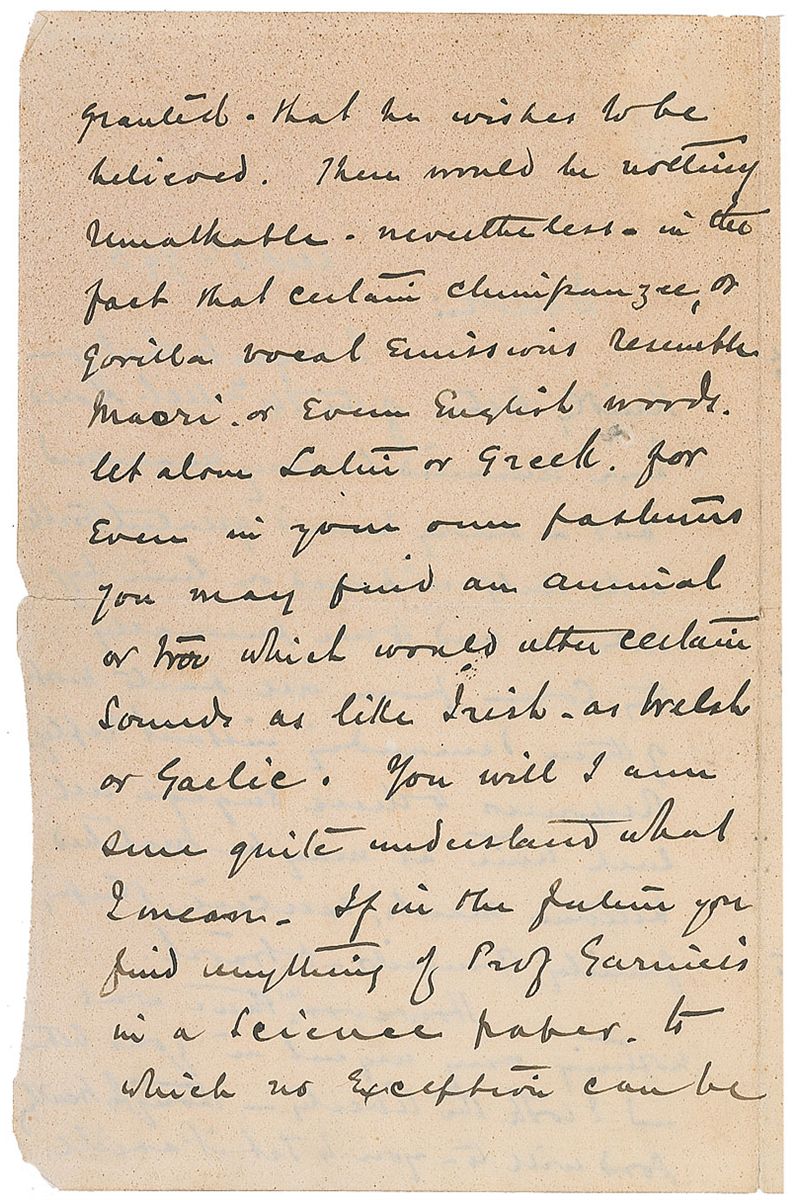 granted - that he wishes to be
believed. There would be nothing
remarkable - nevertheless - in the
fact that certain chimpanzee, or
gorilla vocal emissions resemble
Maori. or Even English words.
let alone Latin or Greek. for
Even in your own pastures
you may find an animal
or two which would utter certain
Sounds as like Irish - as Welsh
or Gaelic. You will I am
sure quite understand what
I mean. If in the future you
find anything of Prof Garnier's
in a Science paper. to
which no Exception can be